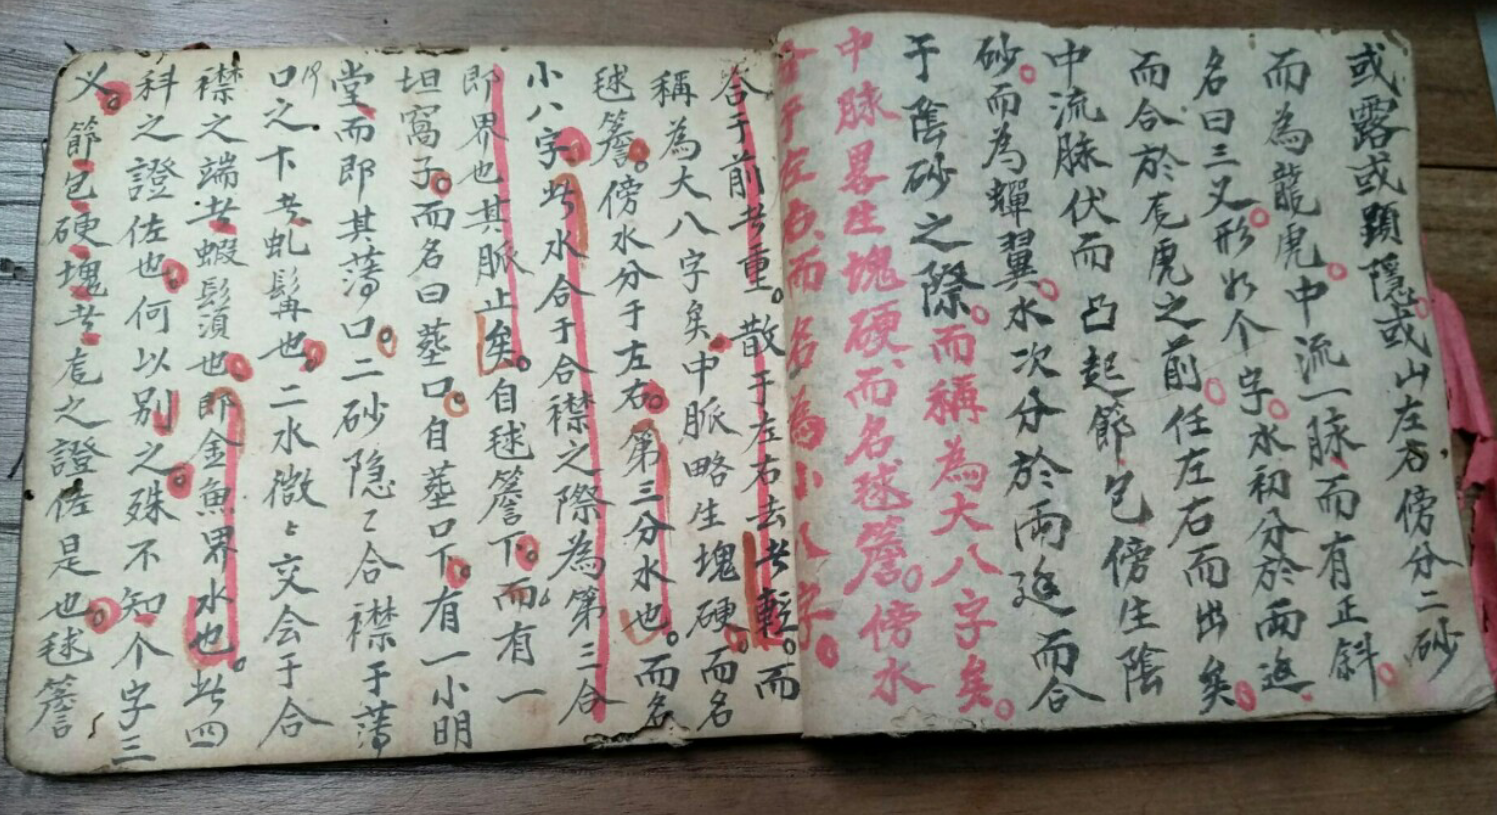 或露或顕隱。或山左右傍分二砂
而為龍虎。中流一脉而有正斜。
名曰三叉形如个字。水初分於两邊
而合於虎之前。任左右而出矣。
中流脉伏而凸起節包傍生陰
砂。而為蟬翼。水次分於兩邊而合
于陰砂之際。而稱為大八字矣。
中脉畧生塊硬、而名毬簷。傍水
合于左右、而名為小八字。
合于前者重。散于左右去者輕。而
稱為大八字矣。中脈略生塊硬。而名
毬簷。傍水分于左右。第三分水也。而名
小八字。此水合于合襟之際為第三合
即界也其脈止矣。自毬簷下。而有一
坦窩子。而名曰塟口。自塟口下。有一小明
堂而即其薄口。二砂隐〻合襟于薄
口之下者虬髯也。二水微〻交会于合
襟之端者蝦鬚須也。即金魚界水也。此四
科之證佐也。何以别之殊不知个字三
义。節包硬塊者虎之證佐是也。毬簷